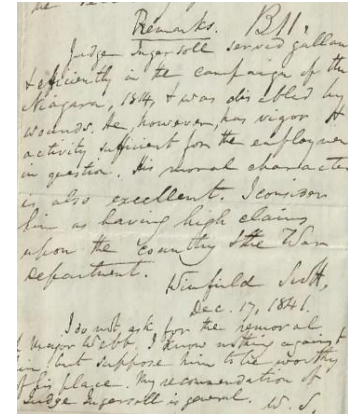 Remarks. B11.
Judge Ingersoll served gallan
& efficiently in the campaign of the
Niagara, 1814, & was disabled by
wounds. He, however, has vigor &
activity sufficient for the employmen
in question. His moral character
is also excellent. I consider
him as having high claims
upon the country & the War
Department.
Winfield Scott,
Dec. 17, 1841.
I do not ask for the removal
of Major Webb. I know nothing against
him, but suppose him to be worthy
of his place. My recommendation of
Judge Ingersoll is general. W. S